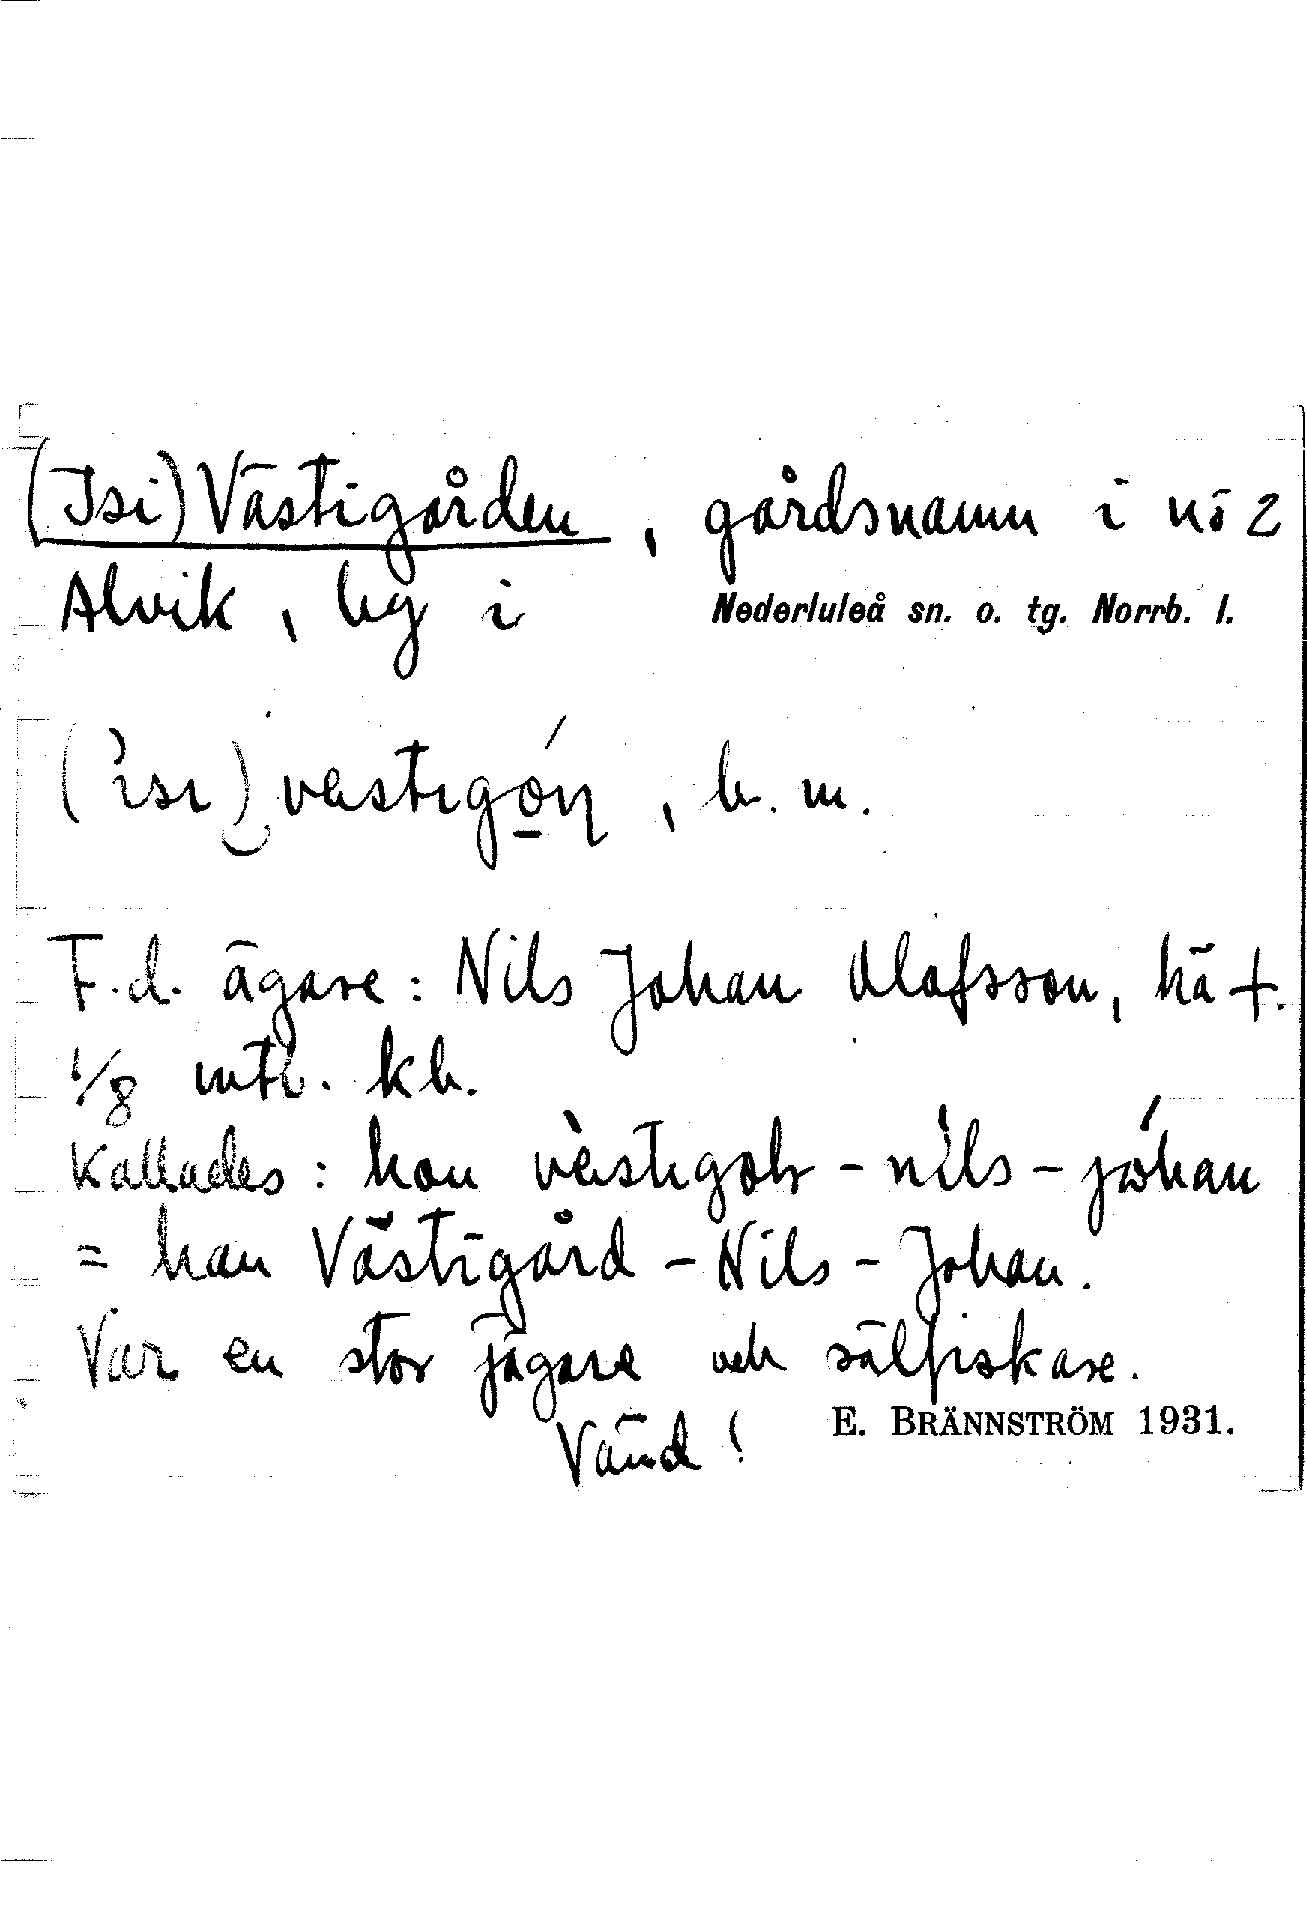 (Isi)Västigården, gårdsnamn i nö 2
Alvik, by i Nederluleå sn. o. tg. Norrb. l.
(ìsı)‿vestıgó̲ɳ, b. m.
F.d. ägare: Nils Johan Olofsson, hä †.
1/8 mtl. kh.
Kallades: han vèstıgoɽ-nìls-jóhan
= han Västigård-Nils-Johan.
Var en stor jägare och sälfiskare.
Vänd!
E. BRÄNNSTRÖM 1931.